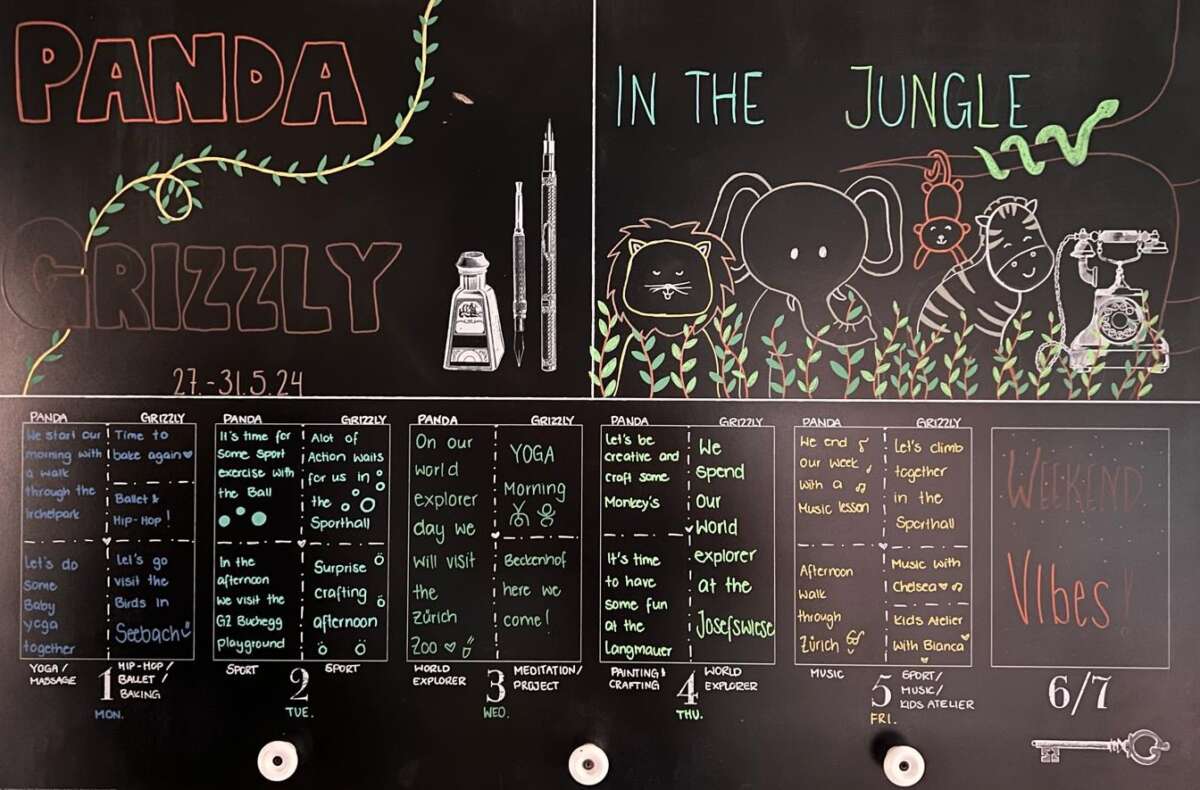 PANDA
GRIZZLY
27.-31.5.24
IN THE JUNGLE
PANDA
We start our
morning with
a walk
through the
Irchelpark
Let's do
some
Baby
yoga
together
YOGA /
MASSAGE
GRIZZLY
Time to
bake again
Ballet &
HIP-HOP!
Let's go
visit the
Birds in
Seebach
HIP-HOP /
BALLET /
BAKING
1
MON.
PANDA
It's time for
some sport
exercise with
the Ball
In the
afternoon
we visit the
GZ Buchegg
playground
SPORT
GRIZZLY
Alot of
Action waits
for us in
the
Sporthall
Surprise
crafting
afternoon
SPORT
2
TUE.
PANDA
On our
world
explorer
day we
will visit
the
Zürich
Zoo
WORLD
EXPLORER
GRIZZLY
YOGA
Morning
Beckenhof
here we
come!
MEDITATION/
PROJECT
3
WED.
PANDA
Let's be
creative and
craft some
Monkey's
It's time
to have
some fun
at the
Langmauer
PAINTING &
CRAFTING
GRIZZLY
We
spend
our
World
explorer
at the
Josefswiese
WORLD
EXPLORER
4
THU.
PANDA
We end
our week
with a
Music lesson
Afternoon
walk
through
Zürich
MUSIC
GRIZZLY
Let's climb
together
in the
Sporthall
Music with
Chelsea
Kids Atelier
With Bianca
SPORT/
MUSIC/
KIDS ATELIER
5
FRI.
WEEKEND
VIbes!
6/7